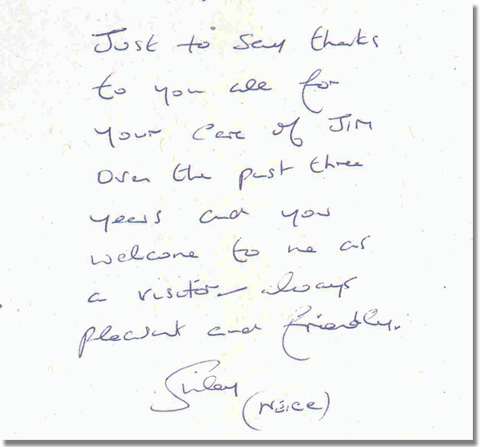 Just to say thanks
to you all for
your care of JIM
over the past three
years and you
welcome to me as
a visitor – always
pleasant and friendly.
(NEICE)